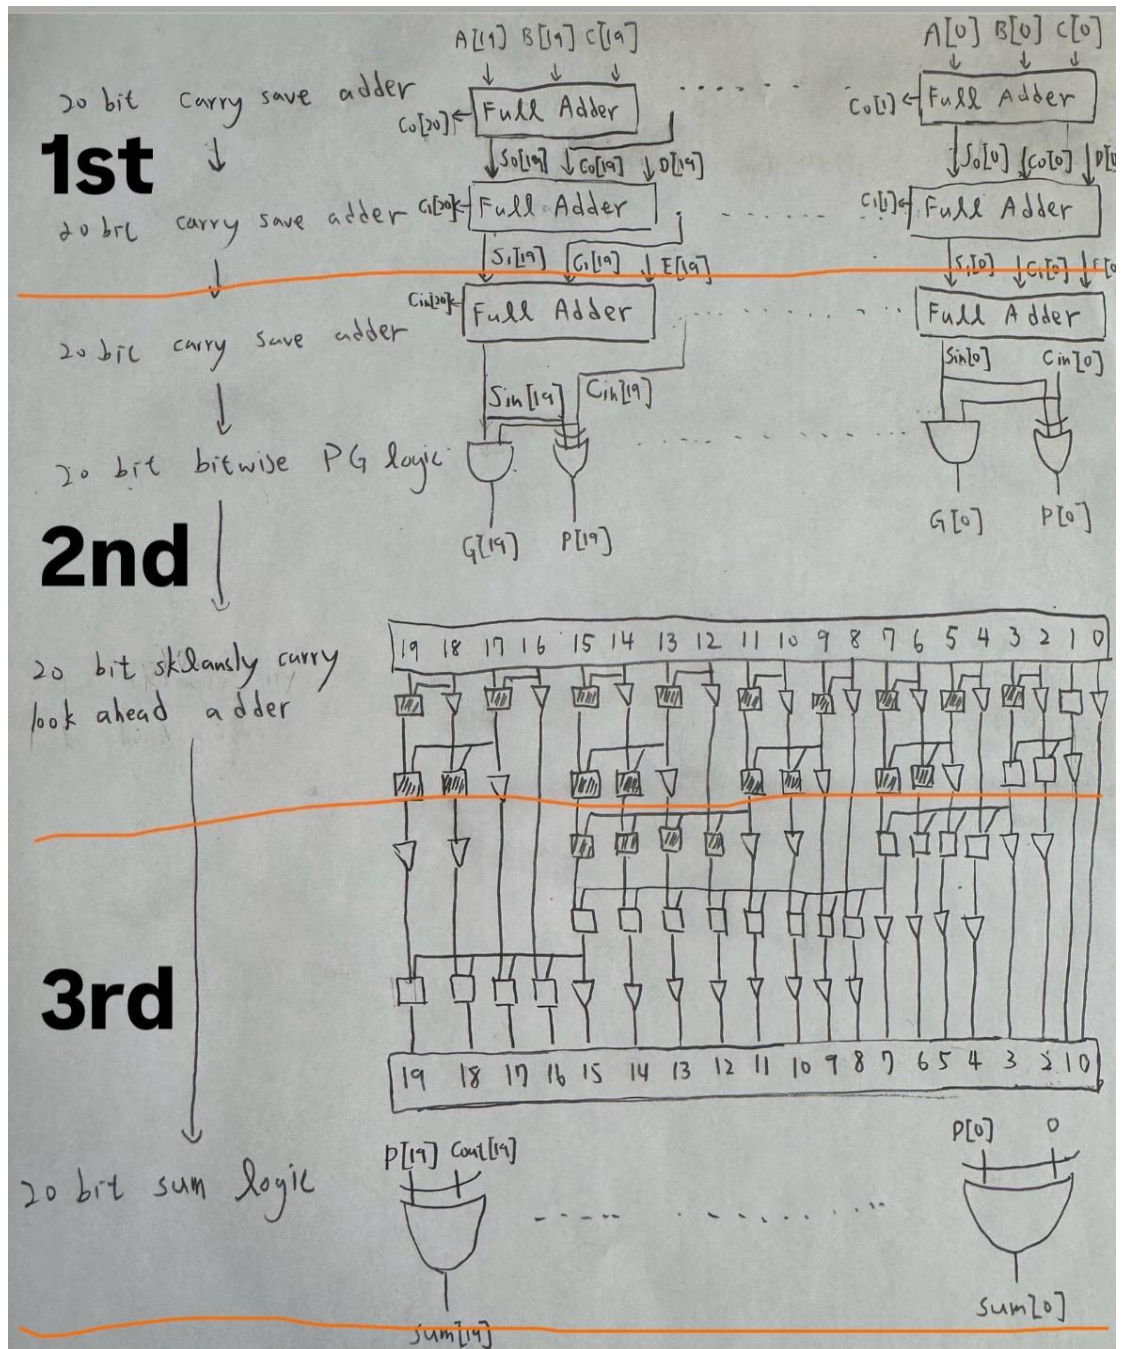 A[19] B[19] C[19]
A[0] B[0] C[0]
20 bit carry save adder
Co[20] Full Adder
Co[1] Full Adder
1st
So[19] Co[19] D[19]
So[0] Co[0]
20 bit carry save adder
C1[20] Full Adder
C1[1] Full Adder
S1[19] C1[19] E[19]
S1[0] C1[0]
20 bit carry save adder
Cin[20] Full Adder
Full Adder
Sin[19] Cin[19]
Sin[0] Cin[0]
20 bit bitwise PG logic
G[19] P[19]
G[0] P[0]
2nd
20 bit sklansly carry
look ahead adder
19 18 17 16 15 14 13 12 11 10 9 8 7 6 5 4 3 2 1 0
3rd
19 18 17 16 15 14 13 12 11 10 9 8 7 6 5 4 3 2 1 0
P[19] Cout[19]
P[0] 0
20 bit sum logic
Sum[19]
Sum[0]